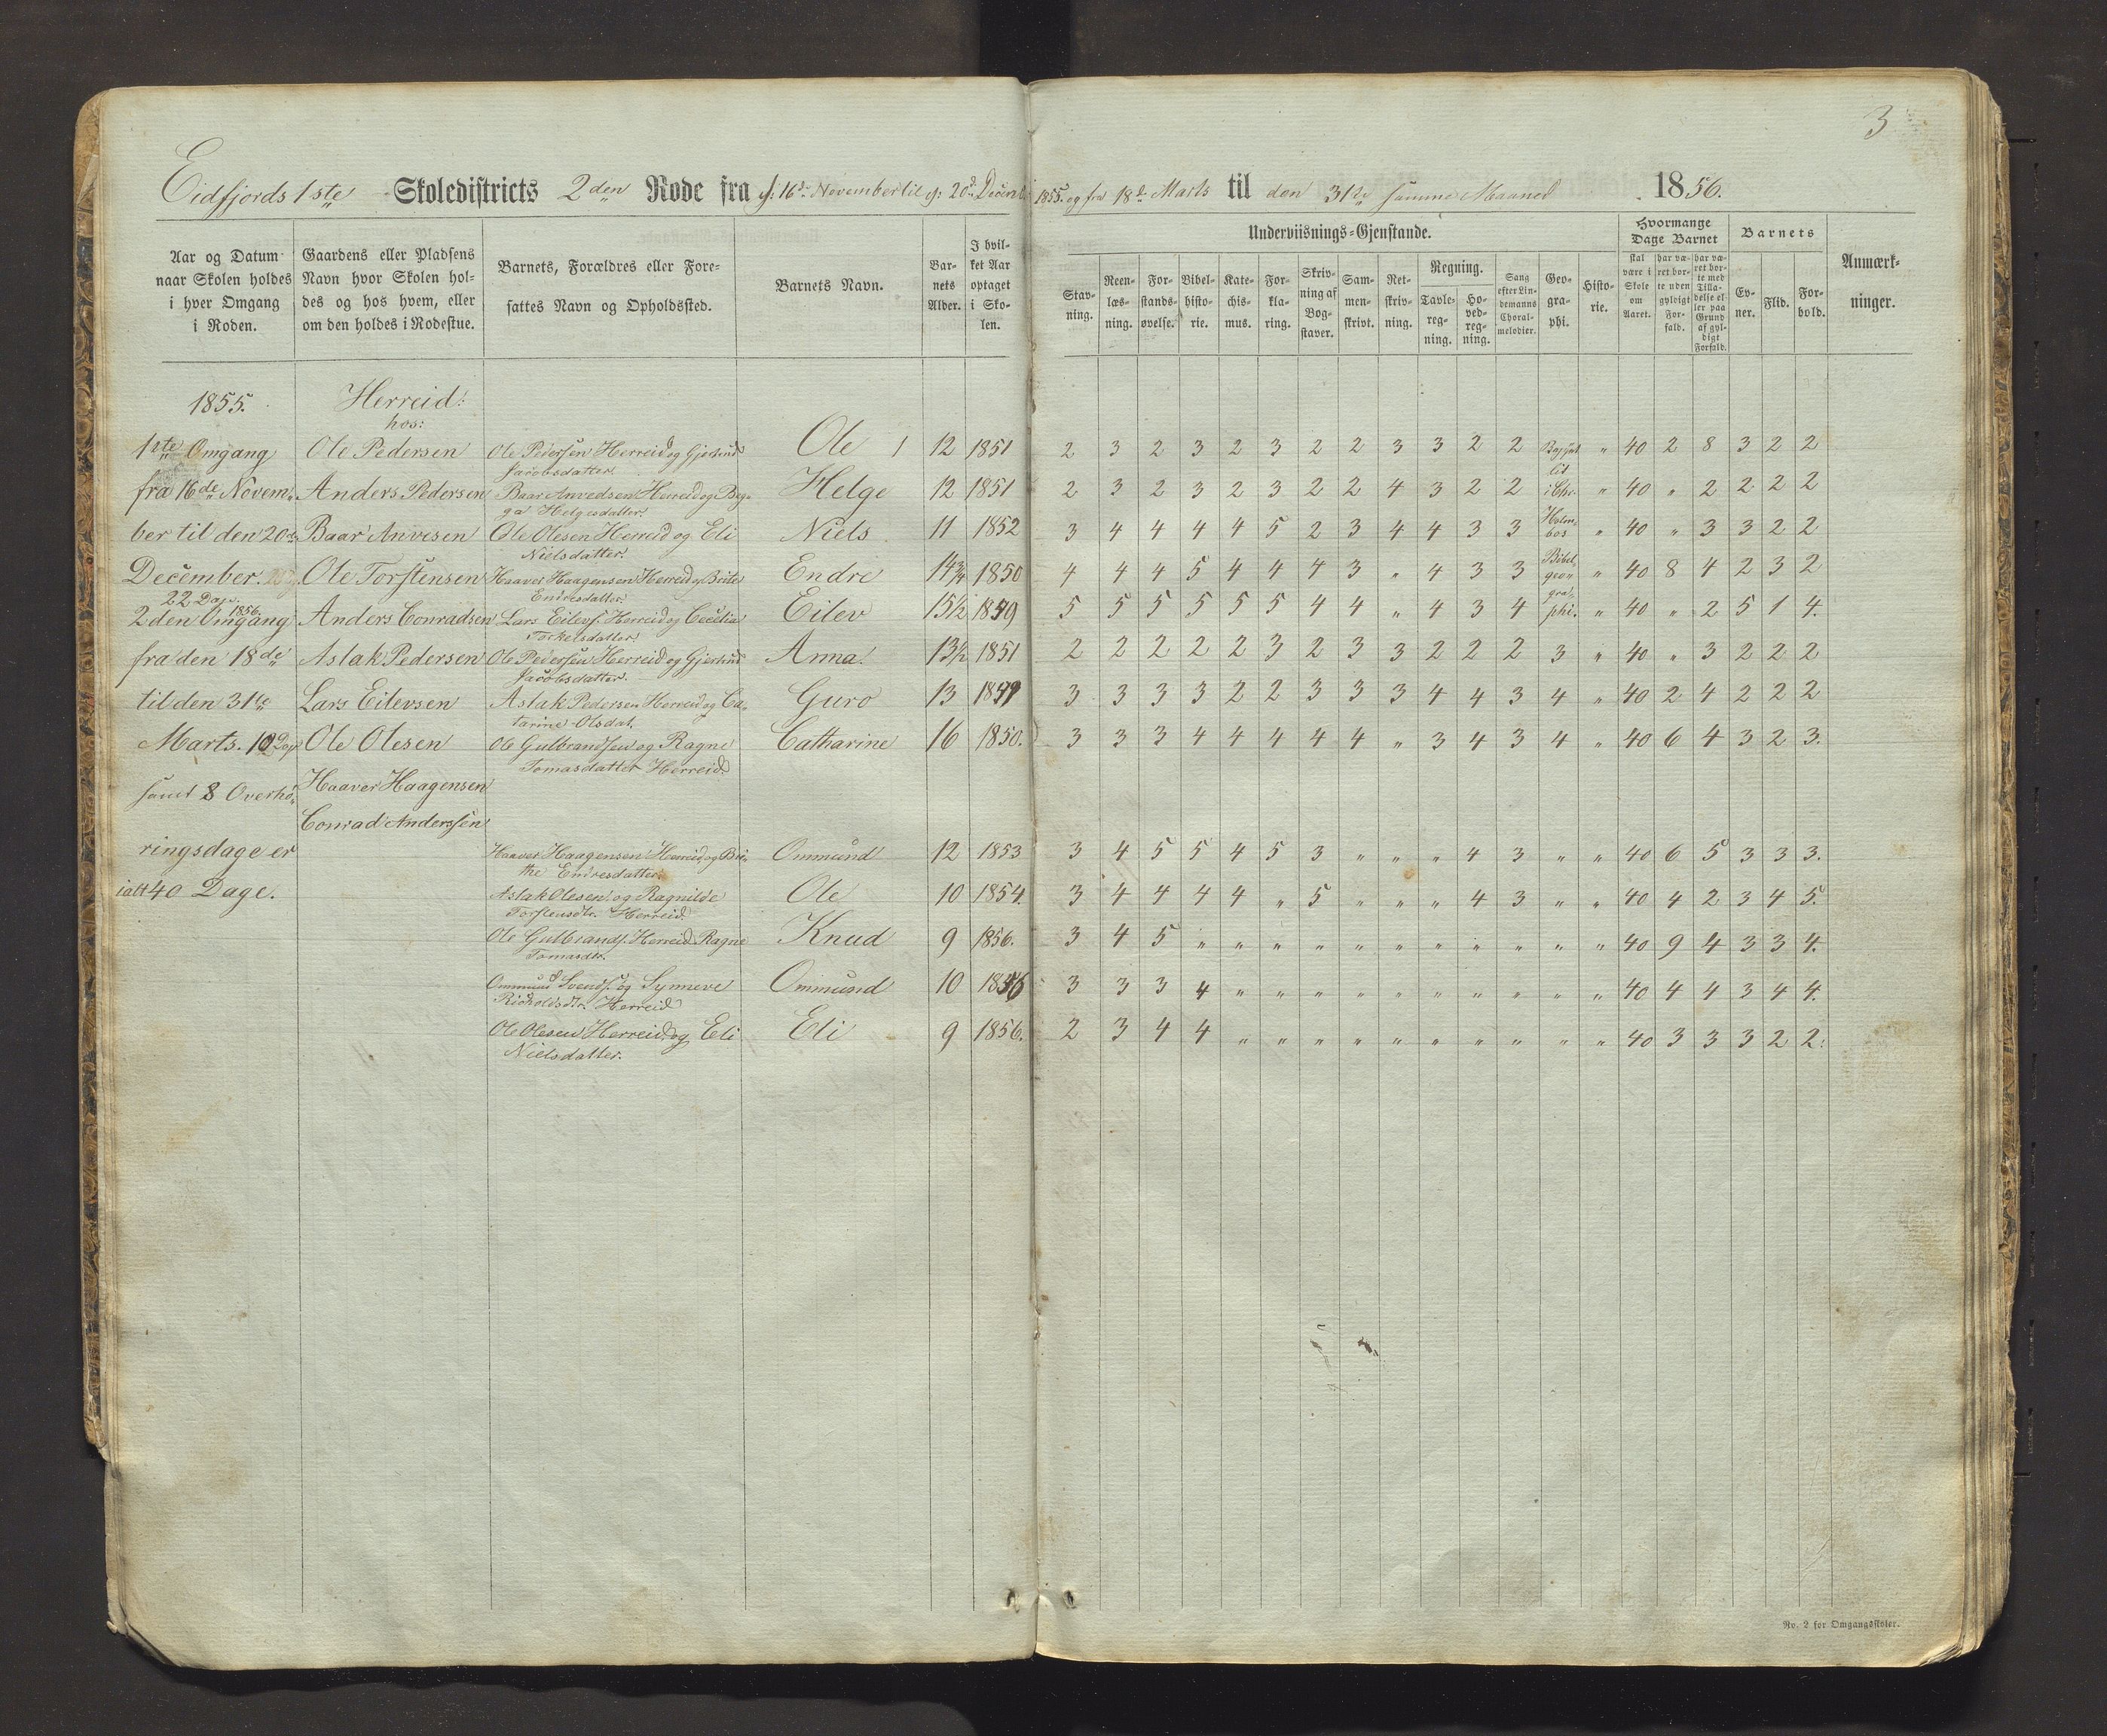 3
Eidfjords 1ste Skoledistricts 2den Rode fra d: 16de November til d: 20de Decemb. 1855. og fra 18de Marts til den 31te samme Maaned 1856.
Aar og Datum naar Skolen holdes i hver Omgang i Roden.
Gaardens eller Pladsens Navn hvor Skolen holdes og hos hvem, eller om den holdes i Rodestue.
Barnets, Forældres eller Foresattes Navn og Opholdssted.
Barnets Navn.
Barnets Alder.
I hvilket Aar optaget i Skolen.
Underviisnings-Gjenstande.
Stavning.
Reenlæsning.
Forstandsøvelse.
Bibelhistorie.
Katechismus.
Forklaring.
Skrivning af Bogstaver.
Sammenskrivt.
Retskrivning.
Regning.
Tavleregning.
Hovedregning.
Sang efter Lindemanns Choralmelodier.
Geographi.
Historie.
Hvormange Dage Barnet
skal være i Skole om Aaret.
har været borte uden gyldigt Forfald.
har været borte med Tilladelse eller paa Grund af gyldigt Forfald.
Barnets
Evner.
Flid.
Forhold.
Anmærkninger.
1855. Herreid:
hos:
1ste Omgang Ole Pedersen Ole Pedersen Herreid og Gjertrud Ole 1 12 1851 2 3 2 3 2 3 2 2 3 3 2 2 " 40 2 8 3 2 2
Jacobsdatter
fra 16de Novem- Anders Pedersen Baar Anvedsen Herreid og Beg- Helge 12 1851 2 3 2 3 2 3 2 2 4 3 2 2 i Chr. " 40 " 2 2 2 2
ga Helgesdatter.
ber til den 20de Baar Anvesen Ole Olesen Herreid og Eli Niels 11 1852 3 4 4 4 4 5 2 3 4 4 3 3 Holm- " 40 " 3 3 2 2
Nielsdatter. bos
December. Ole Torstensen Haaver Haagensen Herreid og Brite Endre 14 3/4 1850 4 4 4 5 4 4 4 3 " 4 3 3 Bibel- " 40 8 4 2 3 2
22 Dage. Endresdatter. geo-
2den Omgang 1856. Anders Conradsen Lars Eilevs. Herreid og Cecelia Eilev 15 1/2 1849 5 5 5 5 5 5 4 4 " 4 3 4 gra- phi. " 40 " 2 5 1 4.
Torkelsdatter.
fra den 18de Aslak Pedersen Ole Pedersen Herreid og Gjertrud Anna. 13 1/2 1851 2 2 2 2 2 3 2 3 3 2 2 2 3 " 40 " 3 2 2 2
Jacobsdatter.
til den 31te Lars Eilevsen Aslak Pedersen Herreid og Ca- Guro 13 1849 3 3 3 3 2 2 3 3 3 4 4 3 4 " 40 2 4 2 2 2
tarine Olsdat.
Marts. 10 Dage Ole Olesen Ole Gulbrandsen og Ragne Catharine 16 1850. 3 3 3 4 4 4 4 4 " 3 4 3 4 " 40 6 4 3 2 3.
Tomasdatter Herreid
samt 8 Overhø- Haaver Haagensen
Conrad Anderssen
ringsdage er Haaver Haagensen Herreid og Bri- Ommund 12 1853 3 4 5 5 4 5 3 " " " 4 3 " " 40 6 5 3 3 3.
the Endresdatter.
ialt 40 Dage. Aslak Olesen og Ragnilde Ole 10 1854. 3 4 4 4 4 " 5 " " " 4 3 " " 40 4 2 3 4 5.
Torstensdtr. Herreid.
Ole Gulbrands. Herreid Ragne Knud 9 1856. 3 4 5 " " " " " " " " " " " 40 9 4 3 3 4.
Tomasdtr.
Ommund Svends. og Synneve Ommund 10 1856 3 3 3 4 " " " " " " " " " " 40 4 4 3 4 4.
Herreid
Ole Olesen Herreid og Eli Eli 9 1856. 2 3 4 4 " " " " " " " " " " 40 3 3 3 2 2.
Nielsdatter.
No. 2 for Omgangsskoler.